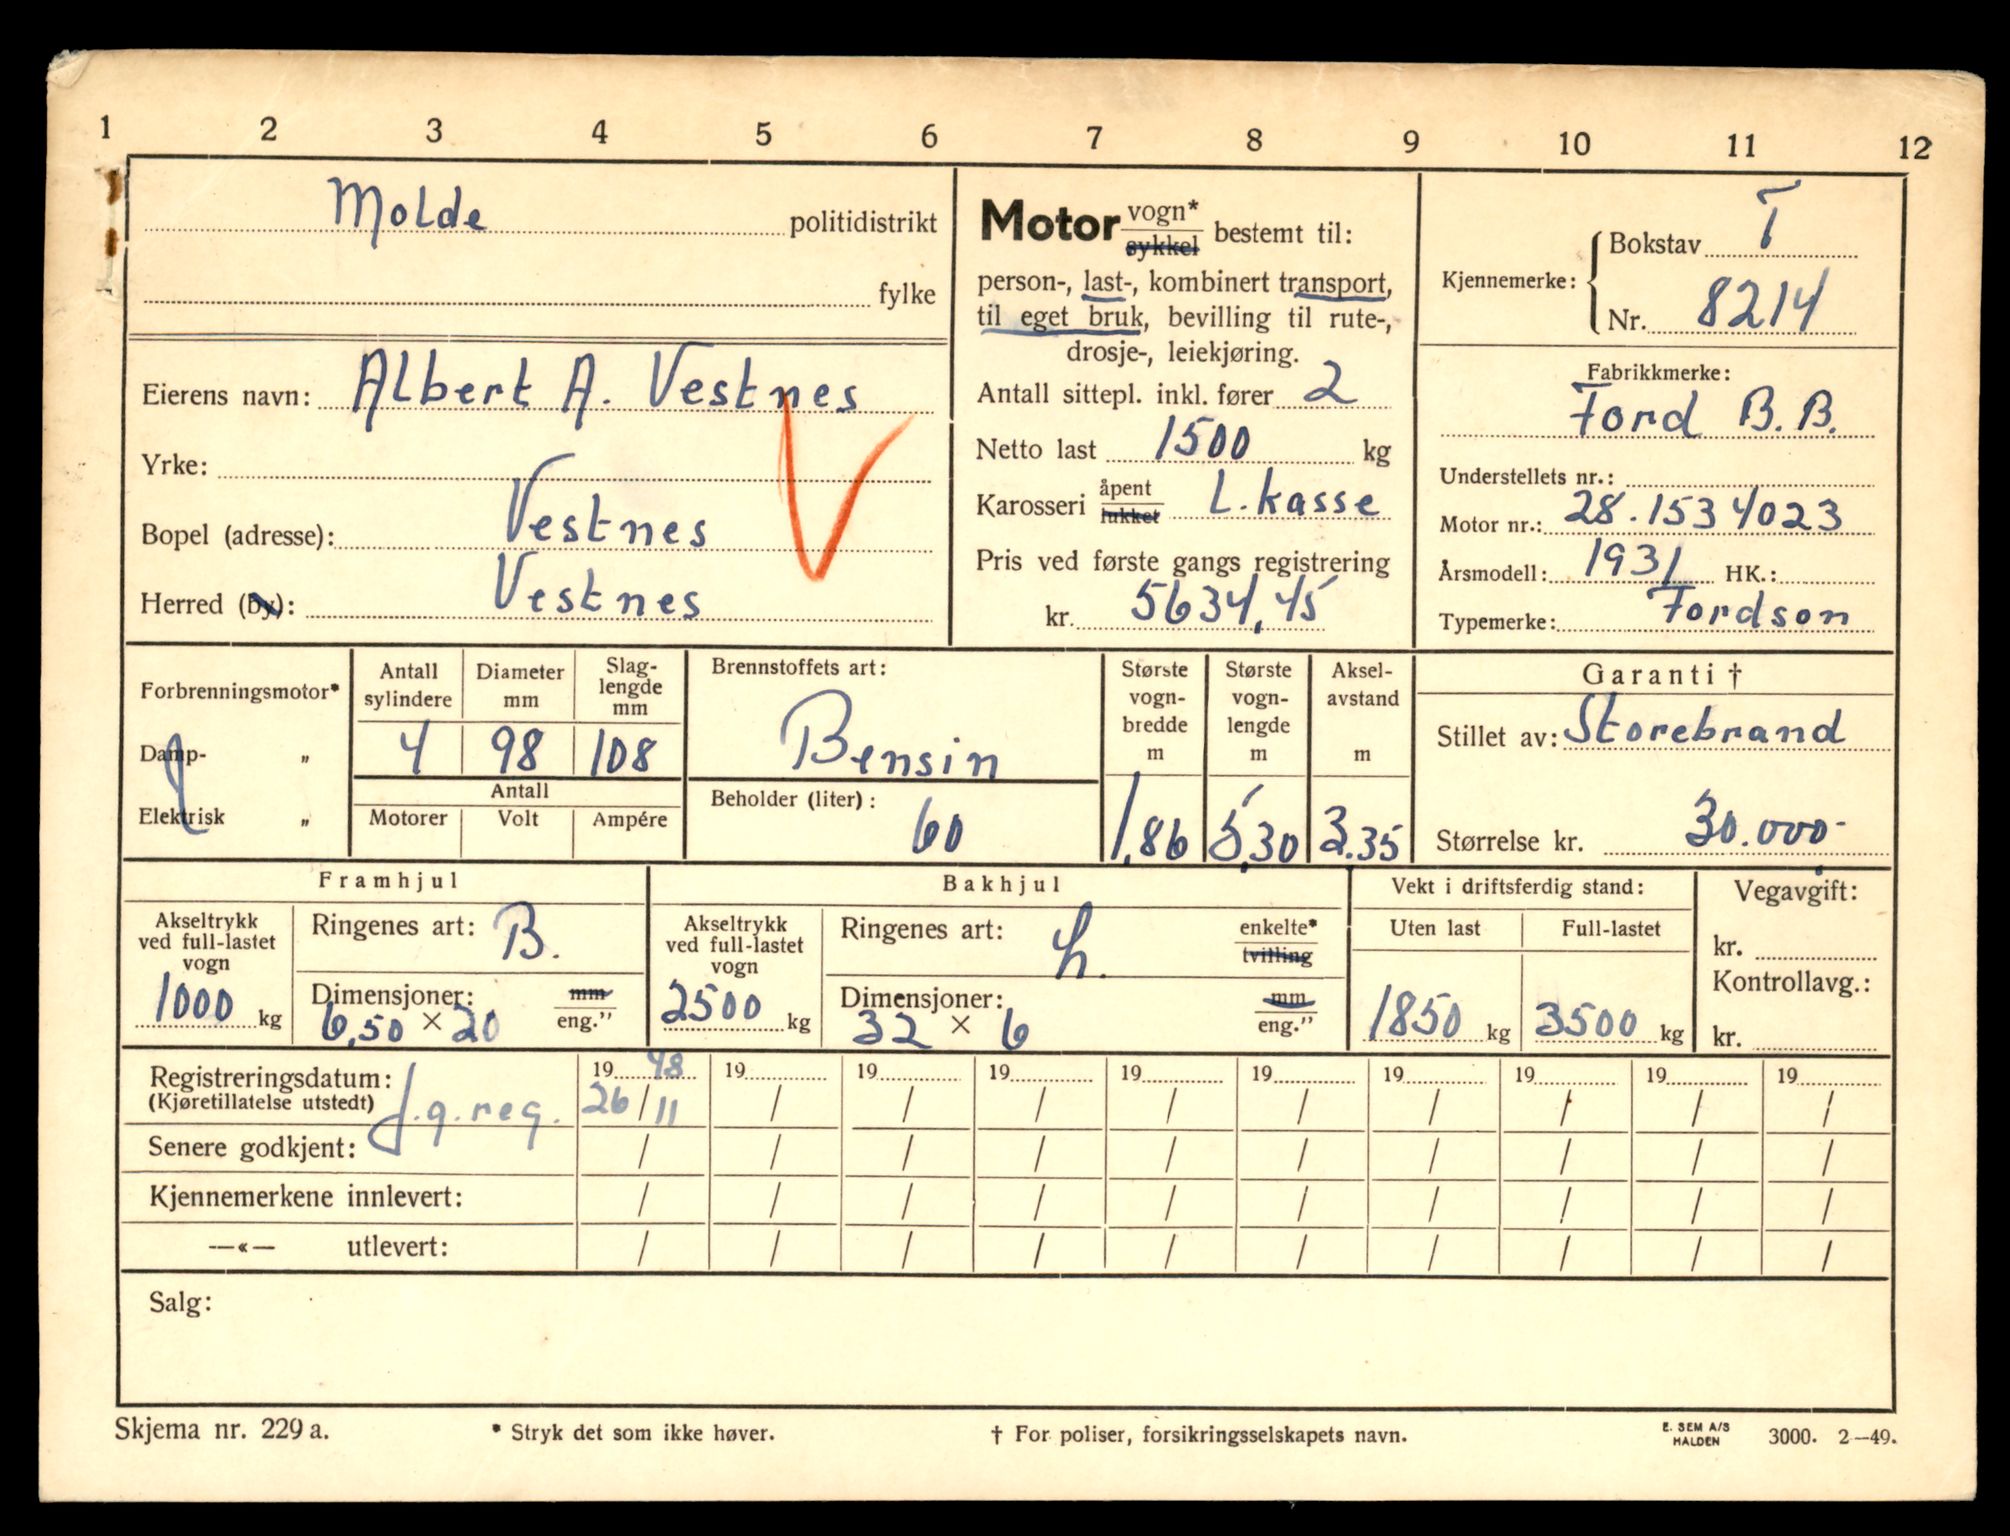 1 2 3 4 5 6 7 8 9 10 11 12
Molde politidistrikt
fylke
Eierens navn: Albert A. Vestnes
Yrke:
Bopel (adresse): Vestnes
Herred (by): Vestnes
Motor vogn* sykkel bestemt til:
person-, last-, kombinert transport,
til eget bruk, bevilling til rute-,
drosje-, leiekjøring.
Antall sittepl. inkl. fører 2
Netto last 1500 kg
Karosseri åpent lukket L.kasse
Pris ved første gangs registrering
kr. 5634,45
Kjennemerke: Bokstav T
Nr. 8214
Fabrikkmerke:
Ford B.B.
Understellets nr.:
Motor nr.: 28.1534023
Årsmodell: 1931 HK.:
Typemerke: Fordson
Forbrenningsmotor*
Damp- „
Elektrisk „
Antall sylindere
Diameter mm
Slag-lengde mm
4 98 108
Antall
Motorer Volt Ampére
Brennstoffets art:
Bensin
Beholder (liter):
60
Største vogn-bredde m
1,86
Største vogn-lengde m
5,30
Aksel-avstand m
3.35
Garanti †
Stillet av: Storebrand
Størrelse kr. 30.000-
Framhjul
Akseltrykk ved full-lastet vogn
1000 kg
Ringenes art: B.
Dimensjoner: mm
6,50 × 20 eng."
Bakhjul
Akseltrykk ved full-lastet vogn
2500 kg
Ringenes art: h. enkelte* tvilling
Dimensjoner: mm
32 × 6 eng."
Vekt i driftsferdig stand:
Uten last Full-lastet
1850 kg 3500 kg
Vegavgift:
kr.
Kontrollavg.:
kr.
Registreringsdatum: 19 48 19 19 19 19 19 19 19 19 19
(Kjøretillatelse utstedt) f.g.reg. 26/11 / / / / / / / / /
Senere godkjent: / / / / / / / / / /
Kjennemerkene innlevert: / / / / / / / / / /
—«— utlevert: / / / / / / / / / /
Salg:
Skjema nr. 229 a. * Stryk det som ikke høver. † For poliser, forsikringsselskapets navn. E. SEM A/S HALDEN 3000. 2—49.